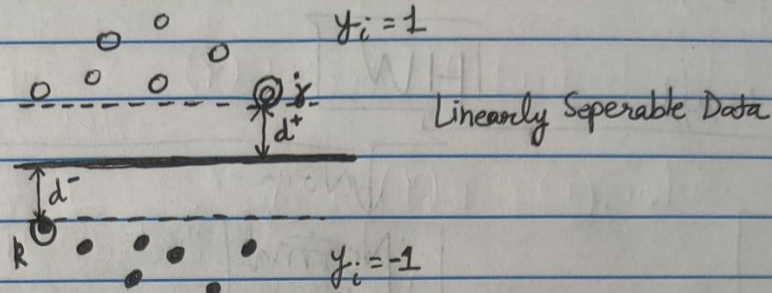 y_i = 1
j
d⁺
Linearly Seperable Data
d⁻
k
y_i = -1